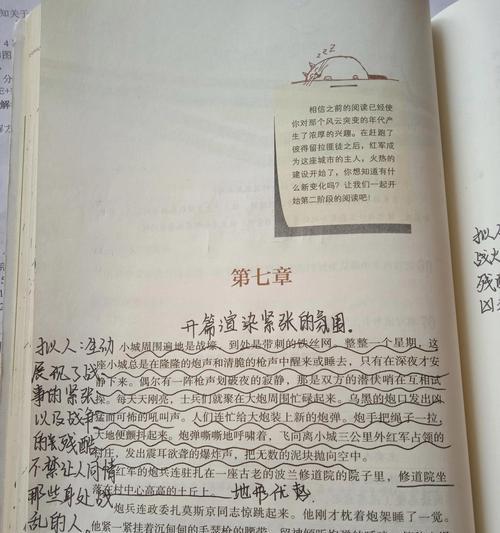 知关于
zzz
相信之前的阅读已经使
你对那个风云突变的年代产
生了浓厚的兴趣。在赶跑了
彼得留拉匪徒之后，红军成
为这座城市的主人，火热的
建设开始了，你想知道有什
么新变化吗？让我们一起开
始第二阶段的阅读吧！
第七章
开篇渲染紧张的氛围。
小城周围遍地是战壕，到处是带刺的铁丝网。整整一个星期，这
座小城总是在隆隆的炮声和清脆的枪声中醒来或睡去，只有在深夜才安
静下来。偶尔有一阵枪声划破夜的寂静，那是双方的潜伏哨在互相试
探。每天天刚亮，士兵们就聚在大炮周围忙碌起来。乌黑的炮口发出凶
猛而可怖的吼叫声。人们连忙给大炮装上新的炮弹。炮手把绳子一拉，
大地便颤抖起来。炮弹嘶嘶地呼啸着，飞向离小城三公里外红军占领的
村庄，发出震耳欲聋的爆炸声，把无数的泥块抛向空中。
红军的炮兵连驻扎在一座古老的波兰修道院的院子里，修道院坐
落在村中心高高的土丘上。
地形优势
炮兵连政委扎莫斯京同志惊跳起来。他刚才枕着炮架睡了一觉。
他紧一紧挂着沉甸甸的毛瑟枪的腰带，
拟人：生动
展现了战
事的紧张
以及战争
的残酷
不禁让人同情
那些身处战
乱的人。
拟
战火
残酷